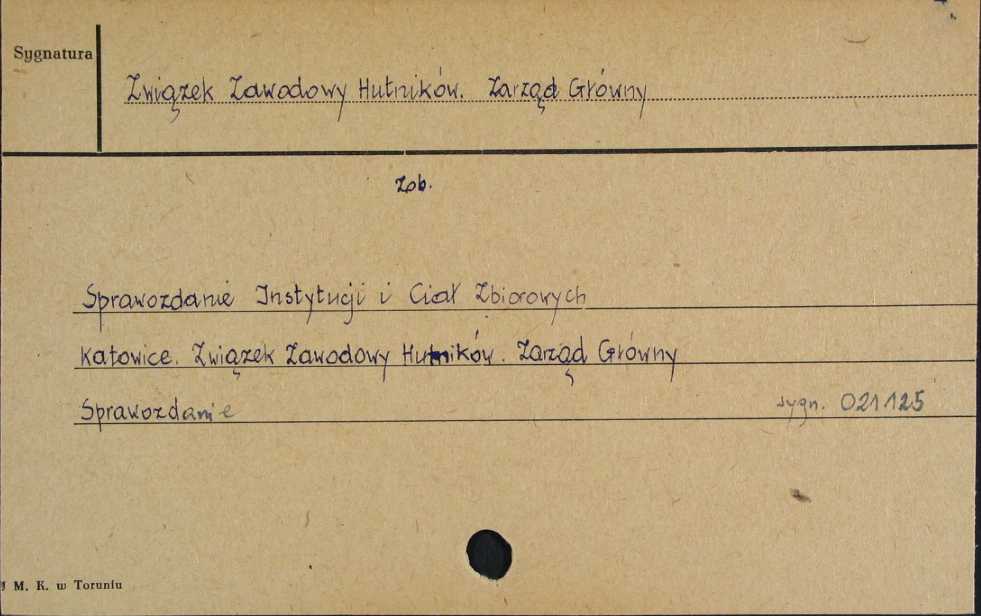 Sygnatura
Związek Zawodowy Hutników. Zarząd Główny
Zob.
Sprawozdanie Instytucji i Ciał Zbiorowych
Katowice. Związek Zawodowy Hutników. Zarząd Główny
Sprawozdanie sygn. 021125
M. K. w Toruniu